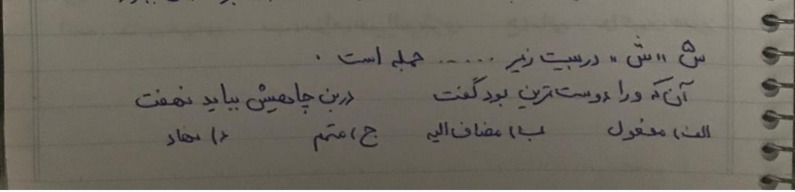 س۵ «ش» در بیت زیر ..... جمله است .
آن که ورا دوست‌ترین بود گفت دربن چاهیش بباید نهفت
الف) مفعول ب) مضاف الیه ج) متمم د) نهاد